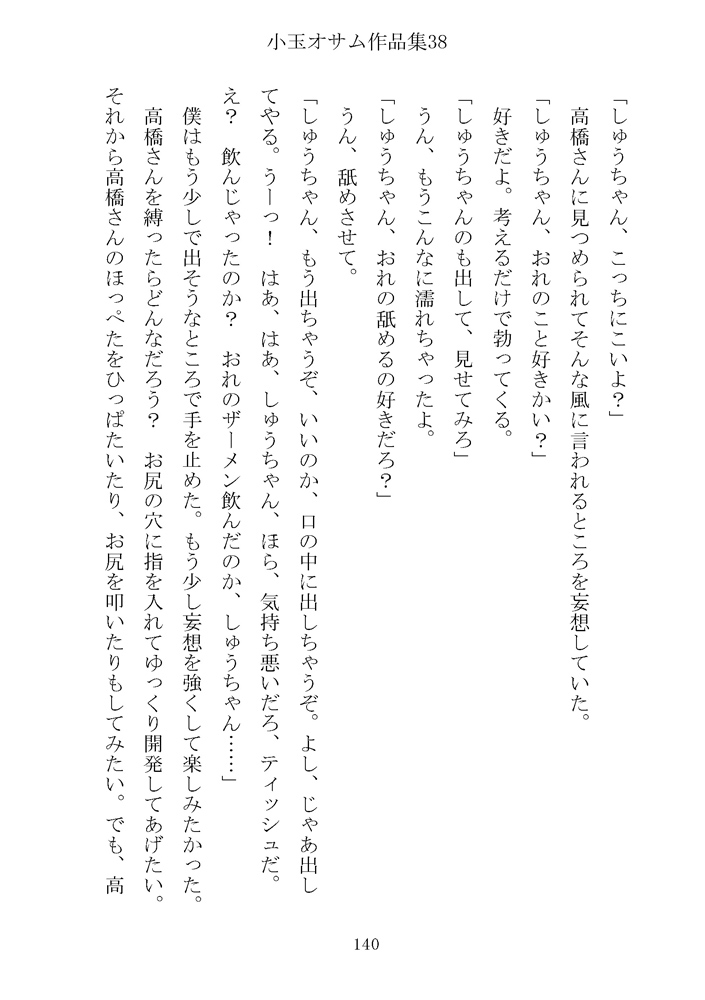 小玉オサム作品集38
「しゅうちゃん、こっちにこいよ?」
高橋さんに見つめられてそんな風に言われるところを妄想していた。
「しゅうちゃん、おれのこと好きかい?」
好きだよ。考えるだけで勃ってくる。
「しゅうちゃんのも出して、見せてみろ」
うん、もうこんなに濡れちゃったよ。
「しゅうちゃん、おれの舐めるの好きだろ?」
うん、舐めさせて。
「しゅうちゃん、もう出ちゃうぞ、いいのか、口の中に出しちゃうぞ。よし、じゃあ出し
てやる。うーっ! はあ、はあ、しゅうちゃん、ほら、気持ち悪いだろ、ティッシュだ。
え? 飲んじゃったのか? おれのザーメン飲んだのか、しゅうちゃん……」
僕はもう少しで出そうなところで手を止めた。もう少し妄想を強くして楽しみたかった。
高橋さんを縛ったらどんなだろう? お尻の穴に指を入れてゆっくり開発してあげたい。
それから高橋さんのほっぺたをひっぱたいたり、お尻を叩いたりもしてみたい。でも、高
140